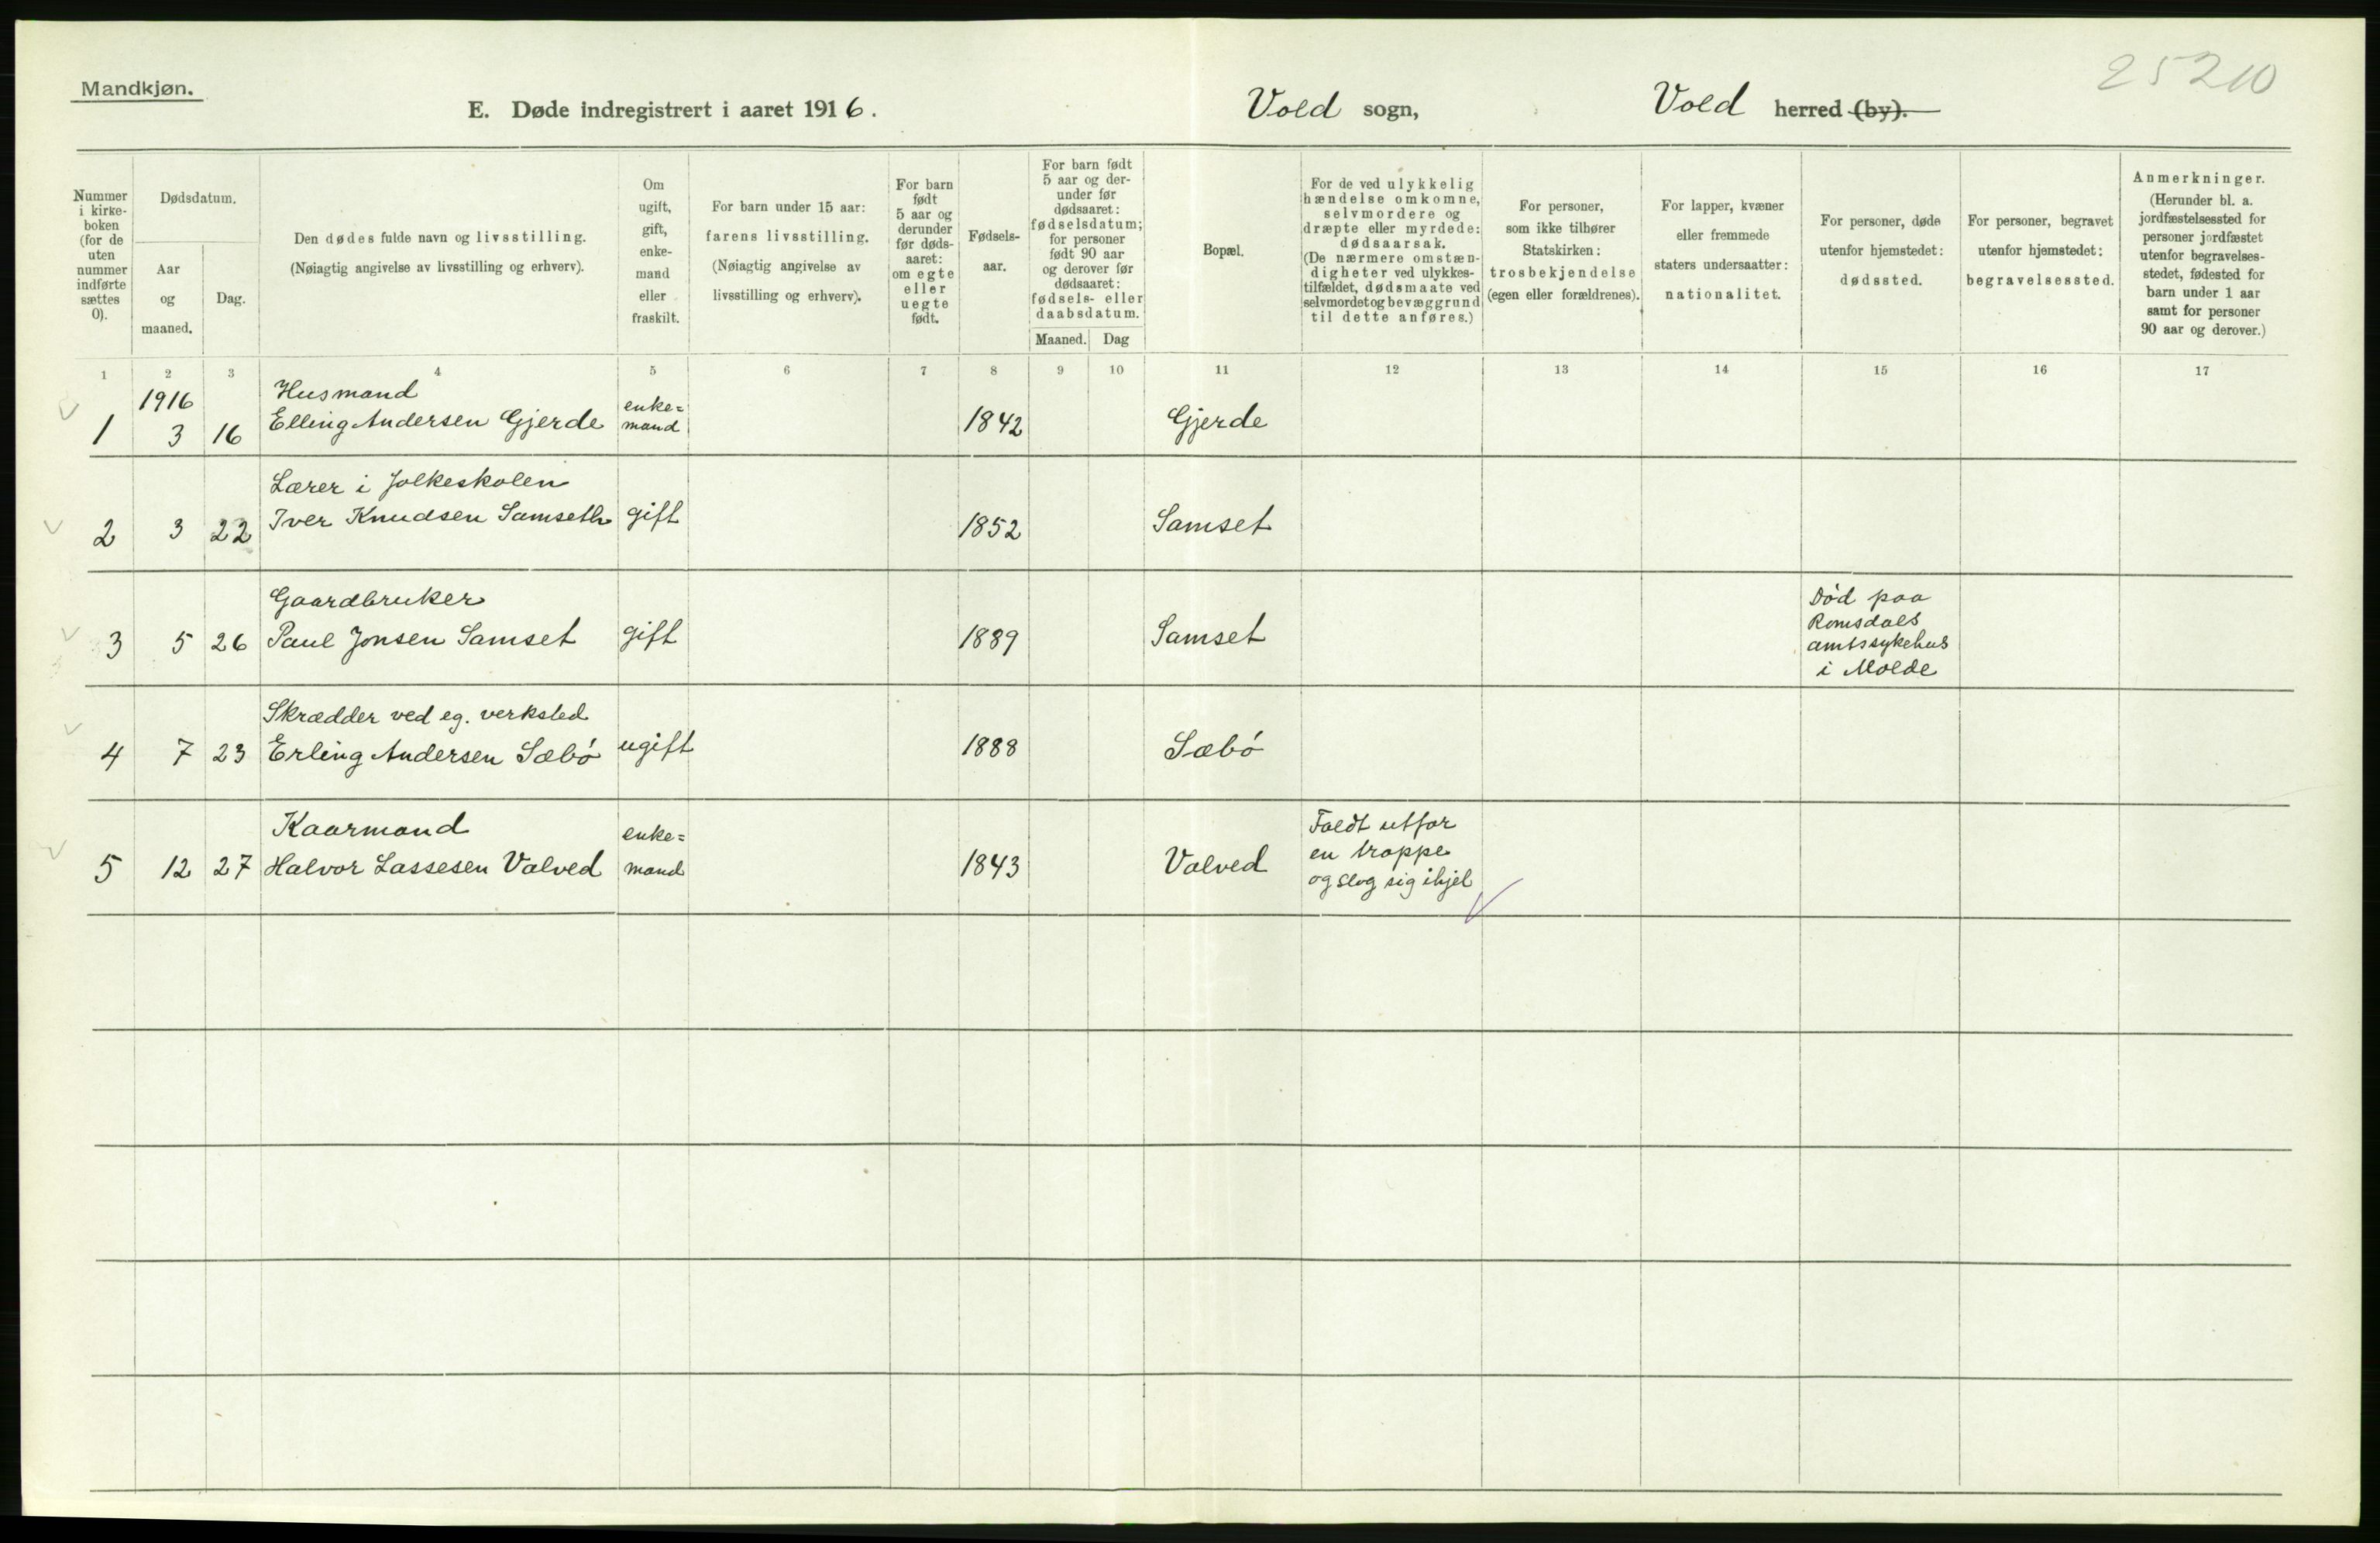 25210
Mandkjøn.
E. Døde indregistrert i aaret 1916. Vold sogn, Vold herred (by).
Nummer i kirke-boken (for de uten nummer indførte sættes 0).
Dødsdatum.
Aar og maaned.
Dag.
Den dødes fulde navn og livsstilling.
(Nøiagtig angivelse av livsstilling og erhverv).
Om ugift, gift, enke-mand eller fraskilt.
For barn under 15 aar:
farens livsstilling.
(Nøiagtig angivelse av
livsstilling og erhverv).
For barn født 5 aar og derunder før døds-aaret: om egte eller uegte født.
Fødsels-aar.
For barn født
5 aar og der-
under før
dødsaaret:
fødselsdatum;
for personer
født 90 aar
og derover før
dødsaaret:
fødsels- eller
daabsdatum.
Maaned. Dag
Bopæl.
For de ved ulykkelig
hændelse omkomne,
selvmordere og
dræpte eller myrdede:
dødsaarsak.
(De nærmere omstæn-
digheter ved ulykkes-
tilfældet, dødsmaate ved
selvmordet og bevæggrund
til dette anføres.)
For personer,
som ikke tilhører
Statskirken:
trosbekjendelse
(egen eller forældrenes).
For lapper, kvæner
eller fremmede
staters undersaatter:
nationalitet.
For personer, døde
utenfor hjemstedet:
dødssted.
For personer, begravet
utenfor hjemstedet:
begravelsessted.
Anmerkninger.
(Herunder bl. a.
jordfæstelsessted for
personer jordfæstet
utenfor begravelses-
stedet, fødested for
barn under 1 aar
samt for personer
90 aar og derover.)
1 2 3 4 5 6 7 8 9 10 11 12 13 14 15 16 17
1916 Husmand enke=
1 3 16 Elling Andersen Gjerde mand 1842 Gjerde
Lærer i folkeskolen
2 3 22 Iver Knudsen Samseth gift 1852 Samset
Gaardbruker Død paa
Romsdals
3 5 26 Paul Jonsen Samset gift 1889 Samset amtssykehus
i Molde
Skrædder ved eg. verksted
4 7 23 Erling Andersen Sæbó ugift 1888 Sæbó
Kaarmand enke= Faldt utfor
en trappe
5 12 27 Halvor Lassesen Valved mand 1843 Valved og slog sig ihjel